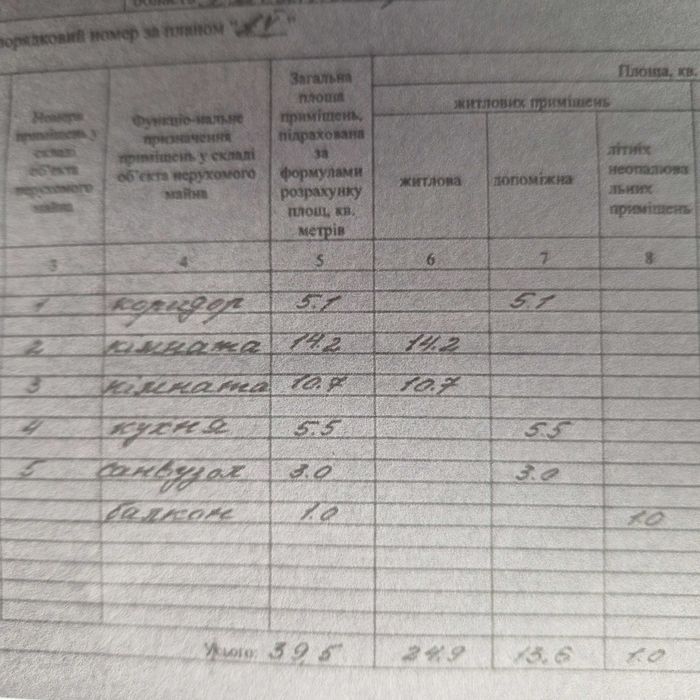 область
порядковий номер за планом "
Площа, кв.
житлових приміщень
Номери приміщень у складі об'єкта нерухомого майна
Функціо-нальне призначення приміщень у складі об'єкта нерухомого майна
Загальна площа приміщень, підрахована за формулами розрахунку площ, кв. метрів
житлова
допоміжна
літніх неопалюва льних приміщень
3 4 5 6 7 8
1 коридор 5.1 5.1
2 кімната 14.2 14.2
3 кімната 10.7 10.7
4 кухня 5.5 5.5
5 санвузол 3.0 3.0
балкон 1.0 1.0
Усього: 39.5 24.9 13.6 1.0